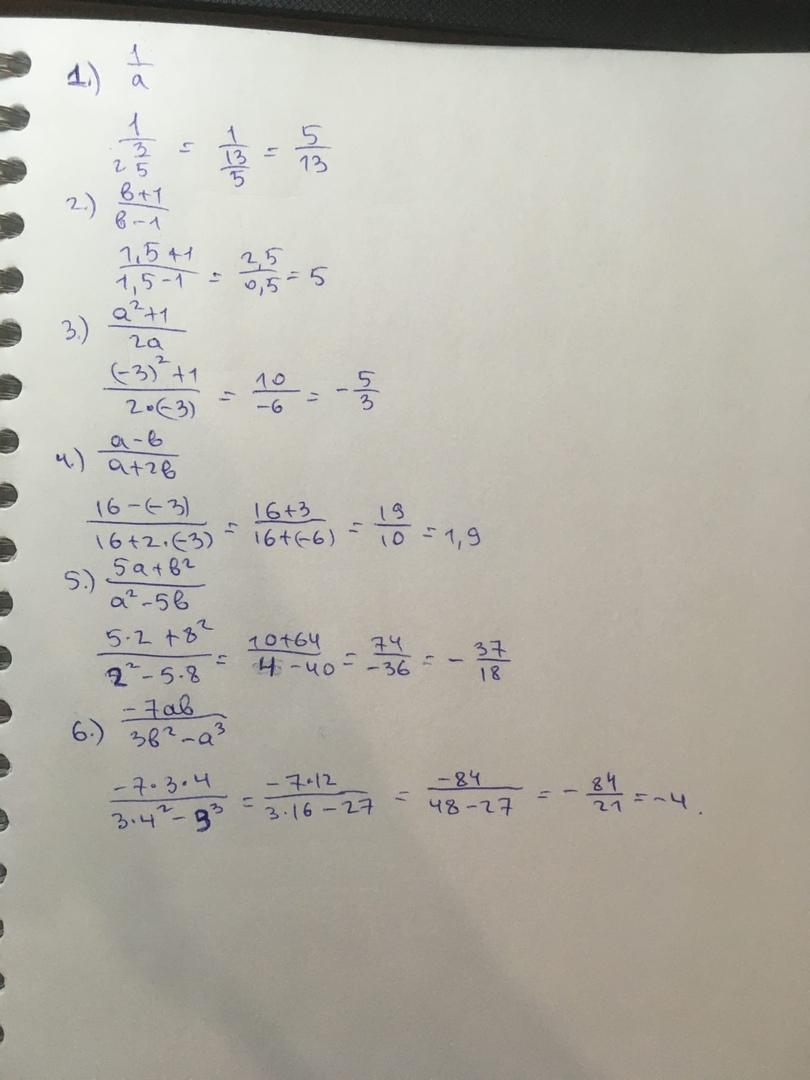 1.) 1/a
1/(2 3/5) = 1/(13/5) = 5/13
2.) (в+1)/(в-1)
(1,5+1)/(1,5-1) = 2,5/0,5 = 5
3.) (a²+1)/(2a)
((-3)²+1)/(2•(-3)) = 10/(-6) = -5/3
4.) (a-в)/(a+2в)
(16-(-3))/(16+2·(-3)) = (16+3)/(16+(-6)) = 19/10 = 1,9
5.) (5a+в²)/(a²-5в)
(5·2+8²)/(2²-5·8) = (10+64)/(4-40) = 74/(-36) = -37/18
6.) (-7aв)/(3в²-a³)
(-7•3•4)/(3·4²-3³) = (-7•12)/(3·16-27) = (-84)/(48-27) = -84/21 = -4.